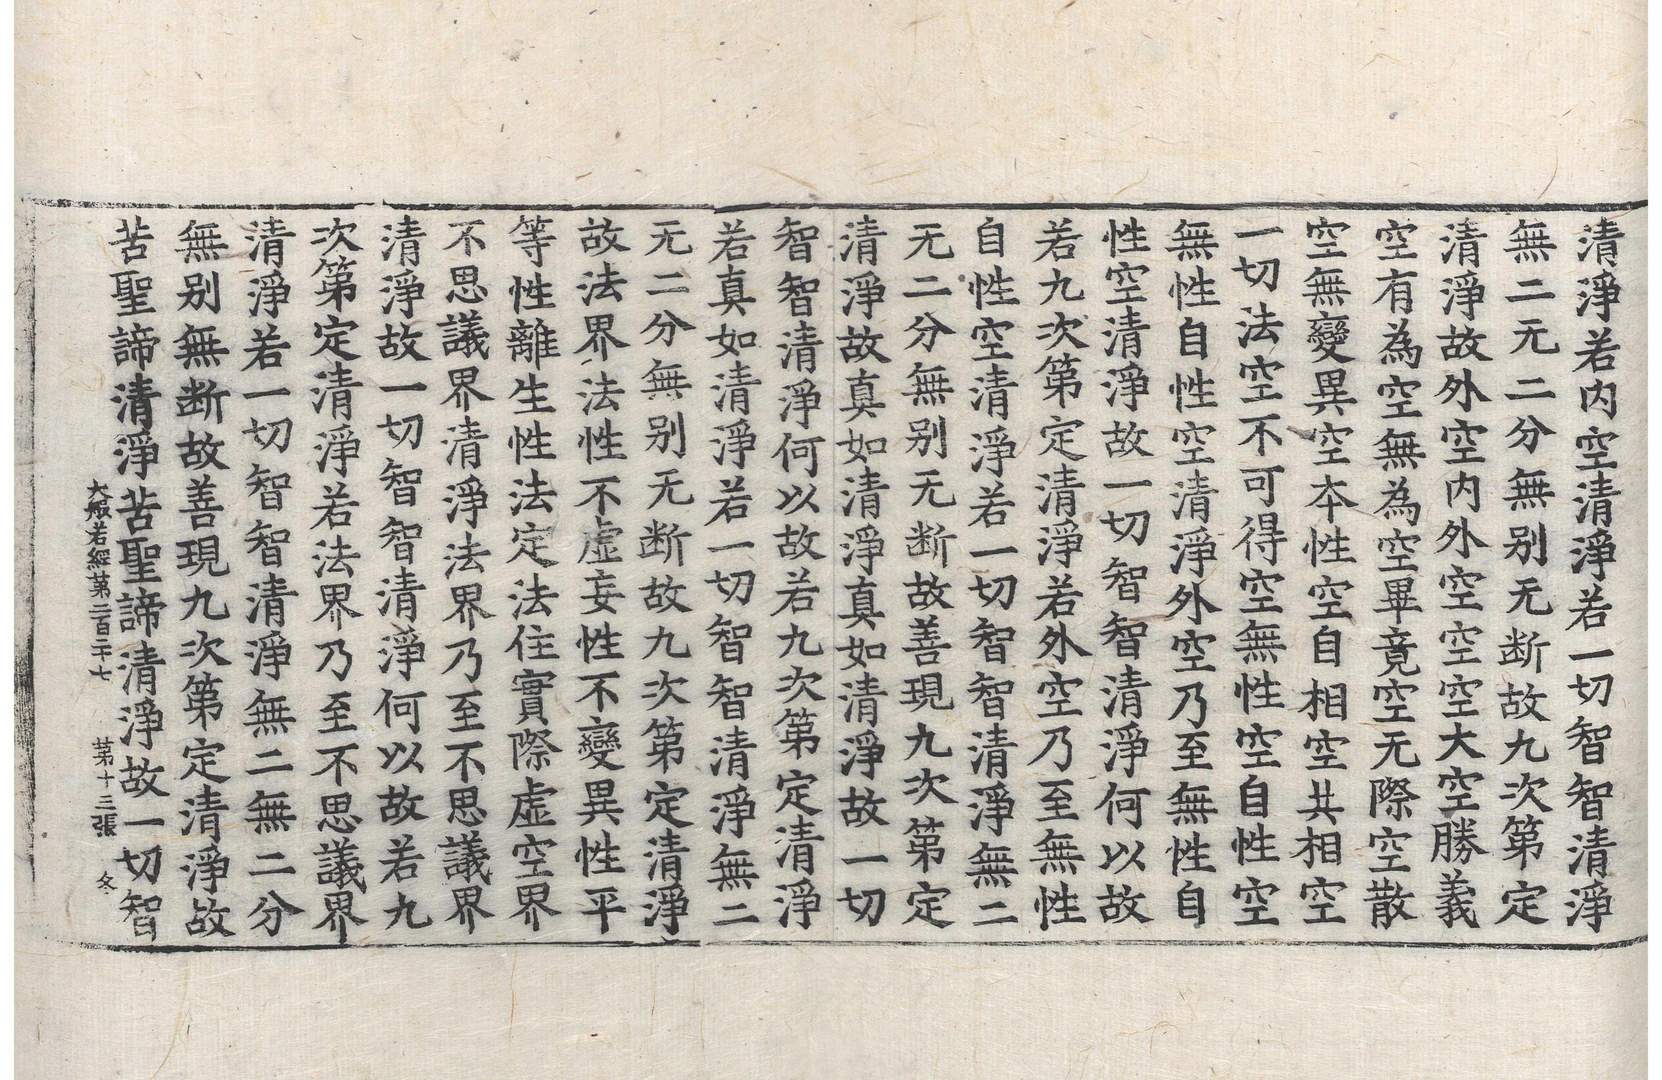 清淨若内空清淨若一切智智清淨
無二无二分無别无断故九次第定
清淨故外空内外空空空大空勝義
空有為空無為空畢竟空无際空散
空無變異空本性空自相空共相空
一切法空不可得空無性空自性空
無性自性空清淨外空乃至無性自
性空清淨故一切智智清淨何以故
若九次第定清淨若外空乃至無性
自性空清淨若一切智智清淨無二
无二分無别无断故善現九次第定
清淨故真如清淨真如清淨故一切
智智清淨何以故若九次第定清淨
若真如清淨若一切智智清淨無二
无二分無别无断故九次第定清淨
故法界法性不虛妄性不變異性平
等性離生性法定法住實際虛空界
不思議界清淨法界乃至不思議界
清淨故一切智智清淨何以故若九
次第定清淨若法界乃至不思議界
清淨若一切智智清淨無二無二分
無别無断故善現九次第定清淨故
苦聖諦清淨苦聖諦清淨故一切智
大般若經第二百二十七 第十三張 冬